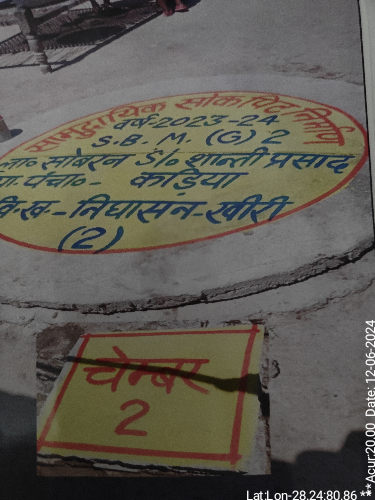 सामुदायिक सोकपिट निर्माण
वर्ष-2023-24
S.B.M. (G) 2
ला० सोबरन S/० शान्ती प्रसाद
ग्रा. पंचा०- कड़िया
वि.ख.-निघासन-खीरी
(2)
चेम्बर
2
Lat:Lon-28.24:80.86 **Acur:20.00 Date: 12-06-2024